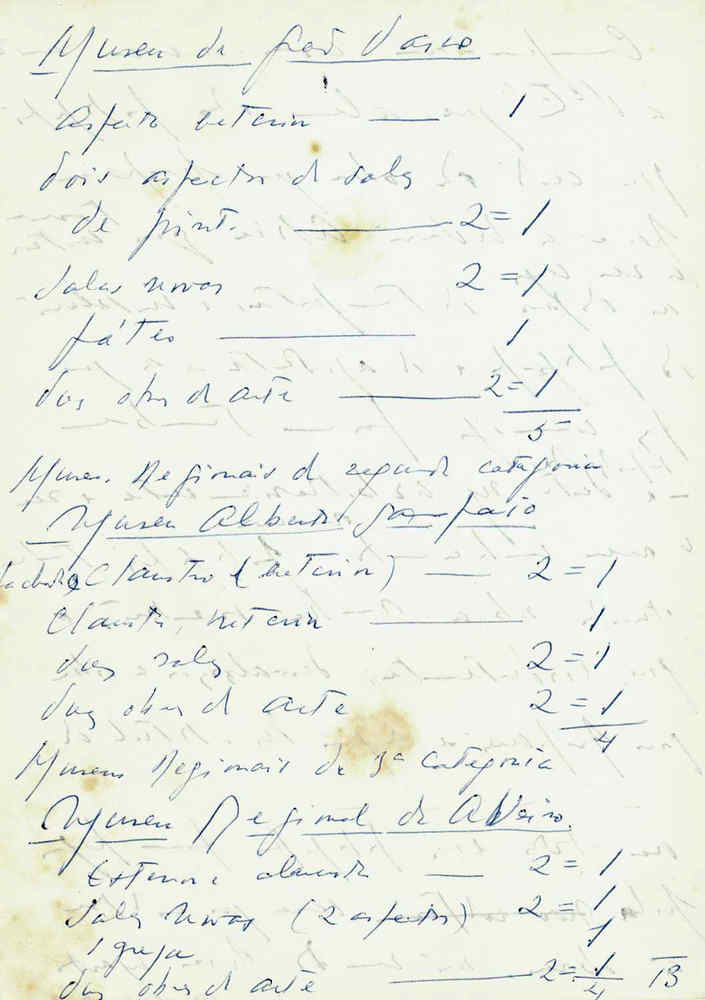 Museu de Grão Vasco
aspecto exterior — 1
dois aspectos de salas
de pint. — 2 = 1
Salas novas 2 = 1
pátio — 1
duas obras de arte — 2 = 1
5
Museus Regionais de segunda categoria
Museu Alberto Sampaio
Claustro (exterior) — 2 = 1
Claustro, — 1
duas salas 2 = 1
duas obras de arte 2 = 1
4
Museus Regionais de 3ª categoria
Museu Regional de Aveiro.
Exterior e claustro — 2 = 1
Salas novas (2 aspectos) — 2 = 1
Igreja 1
duas obras de arte — 2 = 1
4 13